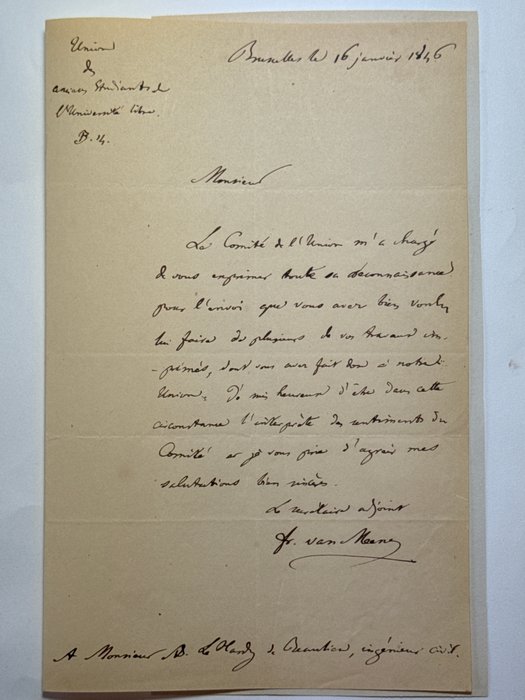 Union
des
anciens Etudiants de
l'Université libre.
B. 14.
Bruxelles le 16 janvier 1846
Monsieur
Le Comité de l'Union m'a chargé
de vous exprimer toute sa reconnaissance
pour l'envoi que vous avez bien voulu
lui faire de plusieurs de vos travaux im-
primés, dont vous avez fait don à notre
Union. Je suis heureux d'être dans cette
circonstance l'interprète des sentiments du
Comité et je vous prie d'agréer mes
salutations bien sincères.
Le secrétaire adjoint
fr. van Meenen
A Monsieur AD. Le Hardy de Beaulieu, ingénieur civil.